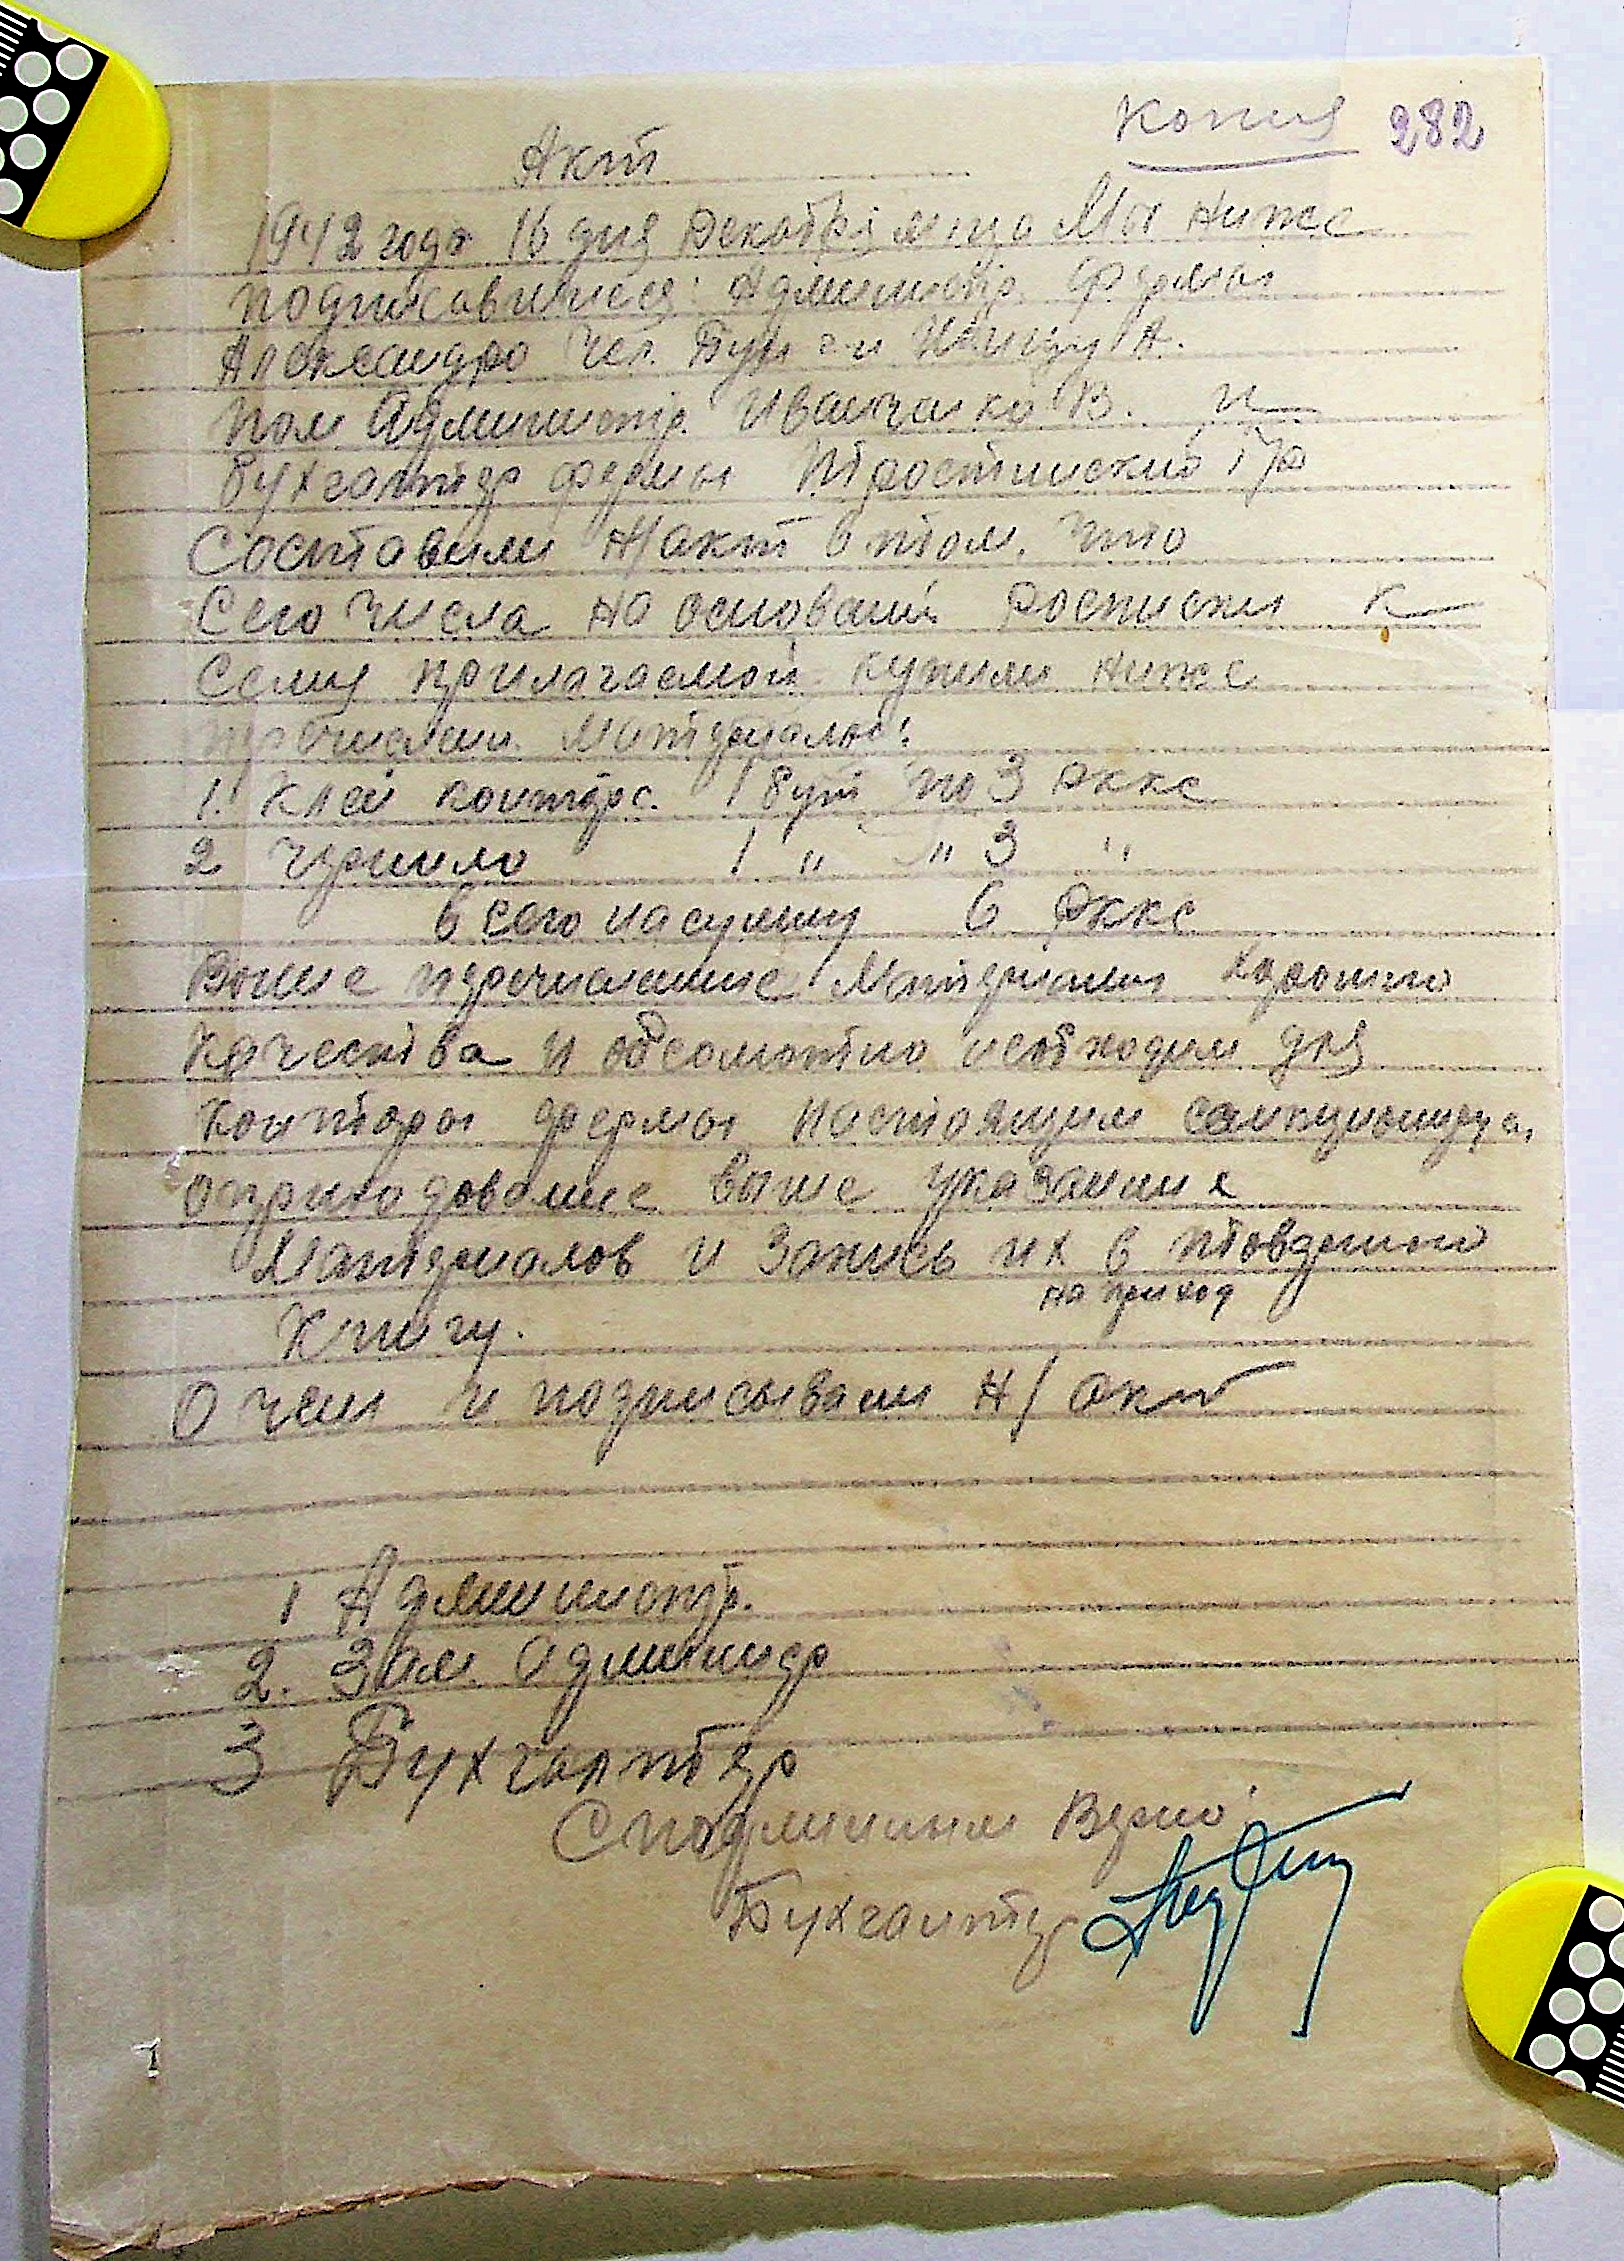 Копия 282
Акт
1942 года 16 дня Декабря м-ца Мы ниже
подписавшися: Администр. фермы
Александро
Пом Администр. Иванченко В. и
бухгалтер фермы
Составили Н/акт в том, что
Сего числа на основании росписки к
сему прилагаемой купили ниже
перечислен. Материалы:
1. Клей конторс. 1 бут по 3 РККС
2 Чернило 1 " " 3 "
всего на сумму 6 РККС
Выше перечисленные Материалы хорошого
качества и обсолютно необходим для
конторы фермы настоящим
оприходование выше указанные
Материалов и запись их в
на приход
Книгу.
О чем и подписываем Н/акт
1 Администр.
2. Зам. админир
3 Бухгалтер
С подлинным Верно:
Бухгалтер